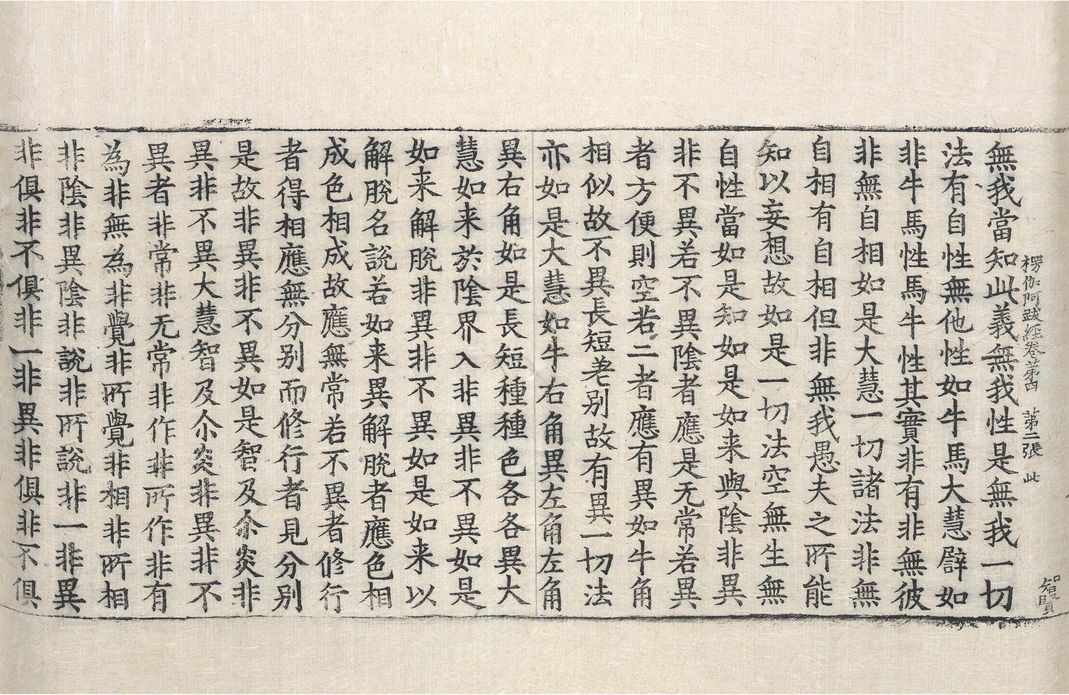 楞伽阿跋經卷苐四 苐二張 此
智賢
無我當知此義無我性是無我一切
法有自性無他性如牛馬大慧譬如
非牛馬性馬牛性其實非有非無彼
非無自相如是大慧一切諸法非無
自相有自相但非無我愚夫之所能
知以妄想故如是一切法空無生無
自性當如是知如是如来與陰非異
非不異若不異陰者應是无常若異
者方便則空若二者應有異如牛角
相似故不異長短差别故有異一切法
亦如是大慧如牛右角異左角左角
異右角如是長短種種色各各異大
慧如来於陰界入非異非不異如是
如来解脫非異非不異如是如来以
解脫名說若如来異解脫者應色相
成色相成故應無常若不異者修行
者得相應無分别而修行者見分别
是故非異非不異如是智及尒炎非
異非不異大慧智及尒炎非異非不
異者非常非无常非作非所作非有
為非無為非覺非所覺非相非所相
非陰非異陰非說非所說非一非異
非俱非不俱非一非異非俱非不俱